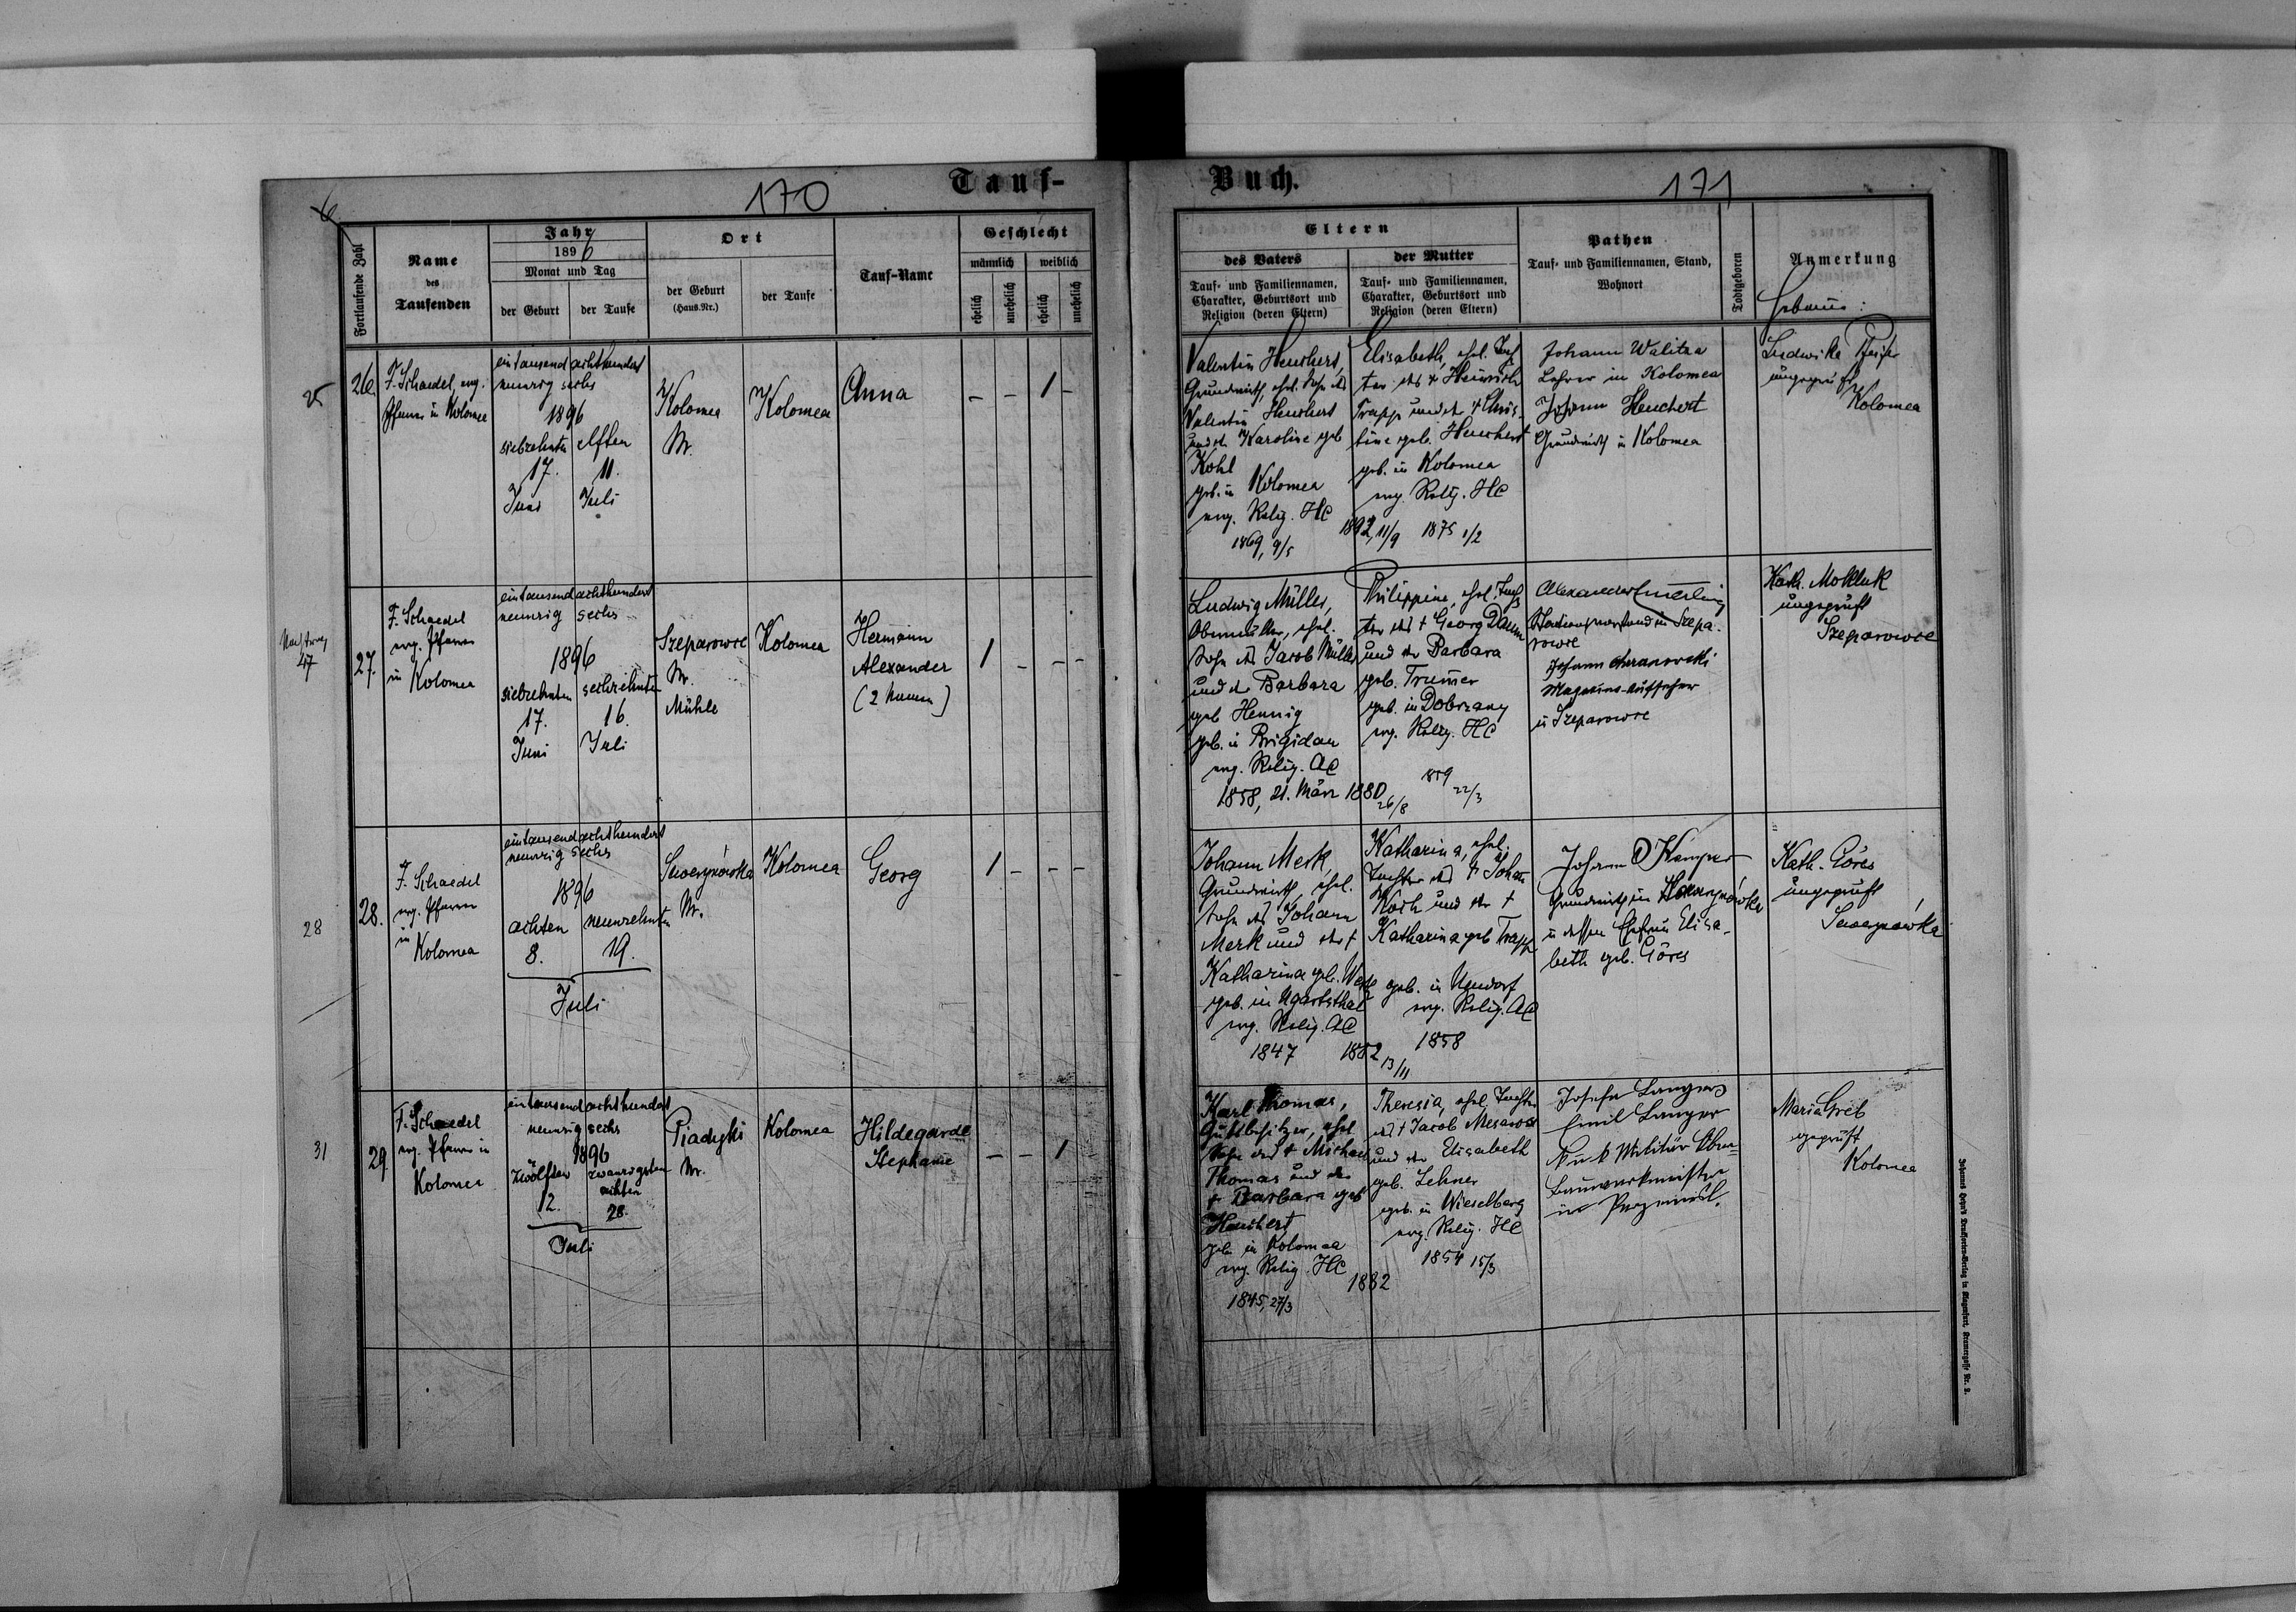 170
Tauf-
Fortlaufende Zahl
Name
des
Taufenden
Jahr
1896
Monat und Tag
der Geburt
der Taufe
Ort
der Geburt
(Haus-Nr.)
der Taufe
Tauf-Name
Geschlecht
männlich
weiblich
ehelich
unehelich
ehelich
unehelich
26.
F. Schaedel, evg.
Pfarrer in Kolomea
eintausendachthundert
neunzig sechs
1896
siebzehnten
17.
Juni
elften
11.
Juli
Kolomea
Nr.
Kolomea
Anna
– – 1 –
47
27.
F. Schaedel
evg. Pfarrer
in Kolomea
eintausendachthundert
neunzig sechs
1896
siebzehnten
17.
Juni
sechzehnten
16.
Juli
Szeparowce
Nr.
Mühle
Kolomea
Hermann
Alexander
(2 Namen)
1 – – –
28
28.
F. Schaedel
evg. Pfarrer
in
Kolomea
eintausendachthundert
neunzig sechs
1896
achten
8.
neunzehnten
19.
Juli
Sewerynówka
Nr.
Kolomea
Georg
1 – – –
31
29.
F. Schaedel
evg. Pfarrer in
Kolomea
eintausendachthundert
neunzig sechs
1896
zwölften
12.
zwanzigsten
achten
28.
Juli
Piadyki
Nr.
Kolomea
Hildegarde
Stephanie
– – 1
Buch.
171
Eltern
des Vaters
Tauf- und Familiennamen,
Charakter, Geburtsort und
Religion (deren Eltern)
der Mutter
Tauf- und Familiennamen,
Charakter, Geburtsort und
Religion (deren Eltern)
Pathen
Tauf- und Familiennamen, Stand,
Wohnort
Todtgeboren
Anmerkung
Valentin Heuchert,
Grundwirth, ehel. Sohn des
Valentin Heuchert
und der Karoline geb
Kohl
geb. in Kolomea
evg. Relig. HC
1869, 9/5
1892, 11/9
Elisabeth, ehel. Toch
ter des † Heinrich
Trapp und der † Chris-
tine geb. Heuchert
geb. in Kolomea
evg. Relig. HC
1875 1/2
Johann Walitza
Lehrer in Kolomea
Johann Heuchert
Grundwirth in Kolomea
Ludwika
ungeprüft
Kolomea
Ludwig Müller,
Obermüller, ehel.
Sohn des Jacob Müller
und der Barbara
geb Hennig
geb. in Brigidau
evg. Relig. AC
1858, 21. März
1880 26/8
Philippine, ehel. Toch
ter des † Georg Daum
und der Barbara
geb. Trumer
geb. in Dobrzany
evg. Relig. HC
859 22/3
Alexander
Stationsvorstand in Szepa-
rowce
Johann
Magazins-Aufseher
in Szeparowce
Kath. Mokluk
ungeprüft
Szeparowce
Johann Merk,
Grundwirth, ehel.
Sohn des Johann
Merk und der †
Katharina geb.
geb. in Ugartsthal
evg. Relig. AC
1847
1882 13/11
Katharina, ehel.
Tochter des † Johann
Koch und der †
Katharina geb Trapp
geb. in Ugendorf
evg. Relig. AC
1858
Johann Kemper
Grundwirth in Sewerynówka
u dessen Ehefrau Elisa-
beth geb. Göres
Kath. Göres
ungeprüft
Sewerynówka
Karl Thomas,
Gutsbesitzer, ehel
Sohn des † Michael
Thomas und der
† Barbara geb
Heuchert
geb in Kolomea
evg. Relig. HC
1845, 27/3
1882
Theresia, ehel. Tochter
des † Jacob
und der Elisabeth
geb. Lehner
geb. in Wieselberg
evg. Relig. HC
1854 15/3
Josefa Langer
Emil Langer
k u k Militär Ober-
bauwerkmeister
in Przemisl.
Maria Greb
geprüft
Kolomea